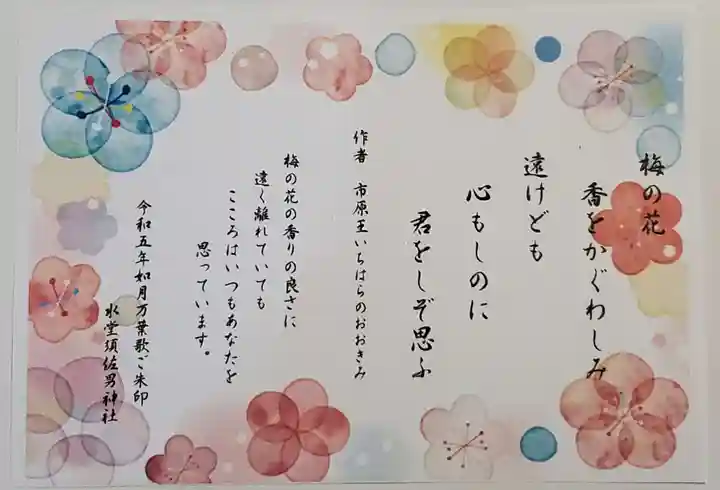 梅の花
香をかぐわしみ
遠けども
心もしのに
君をしぞ思ふ
作者 市原王いちはらのおおきみ
梅の花の香りの良さに
遠く離れていても
こころはいつもあなたを
思っています。
令和五年如月万葉歌ご朱印
水堂須佐男神社